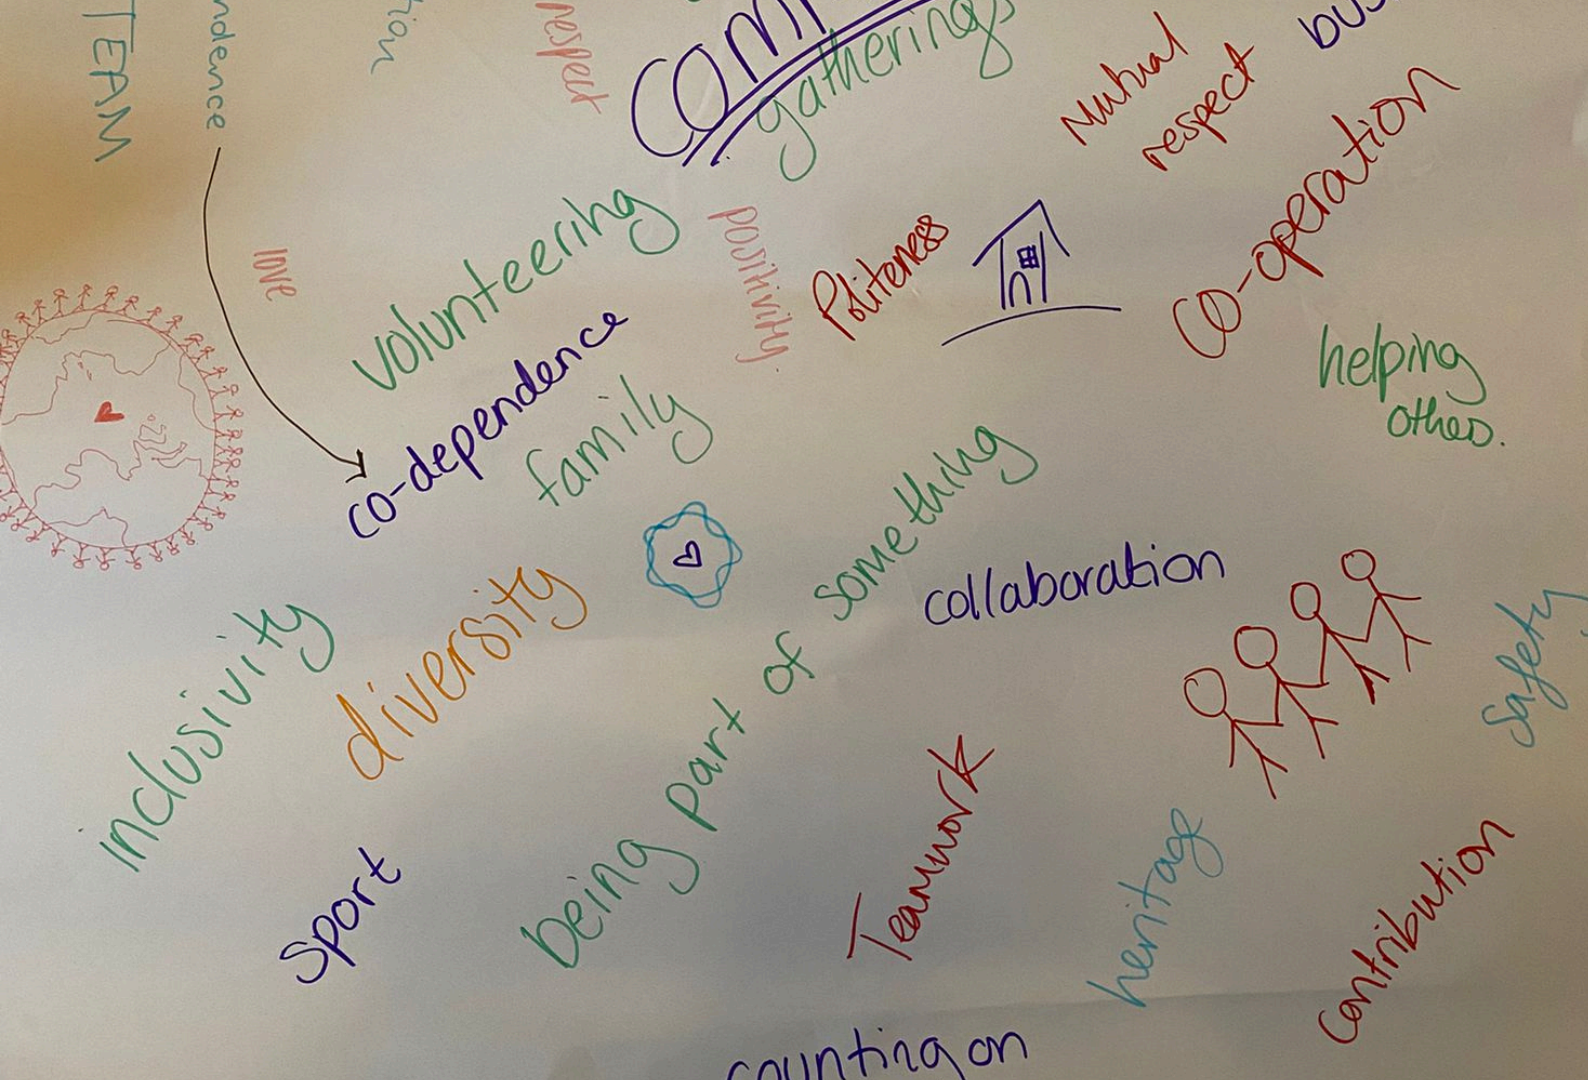 TEAM
respect
gatherings
Mutual
respect
co-operation
volunteering
love
positivity
Politeness
helping
others.
co-dependence
family
being part of something
collaboration
inclusivity
diversity
safety
Sport
Teamwork
heritage
Contribution
counting on